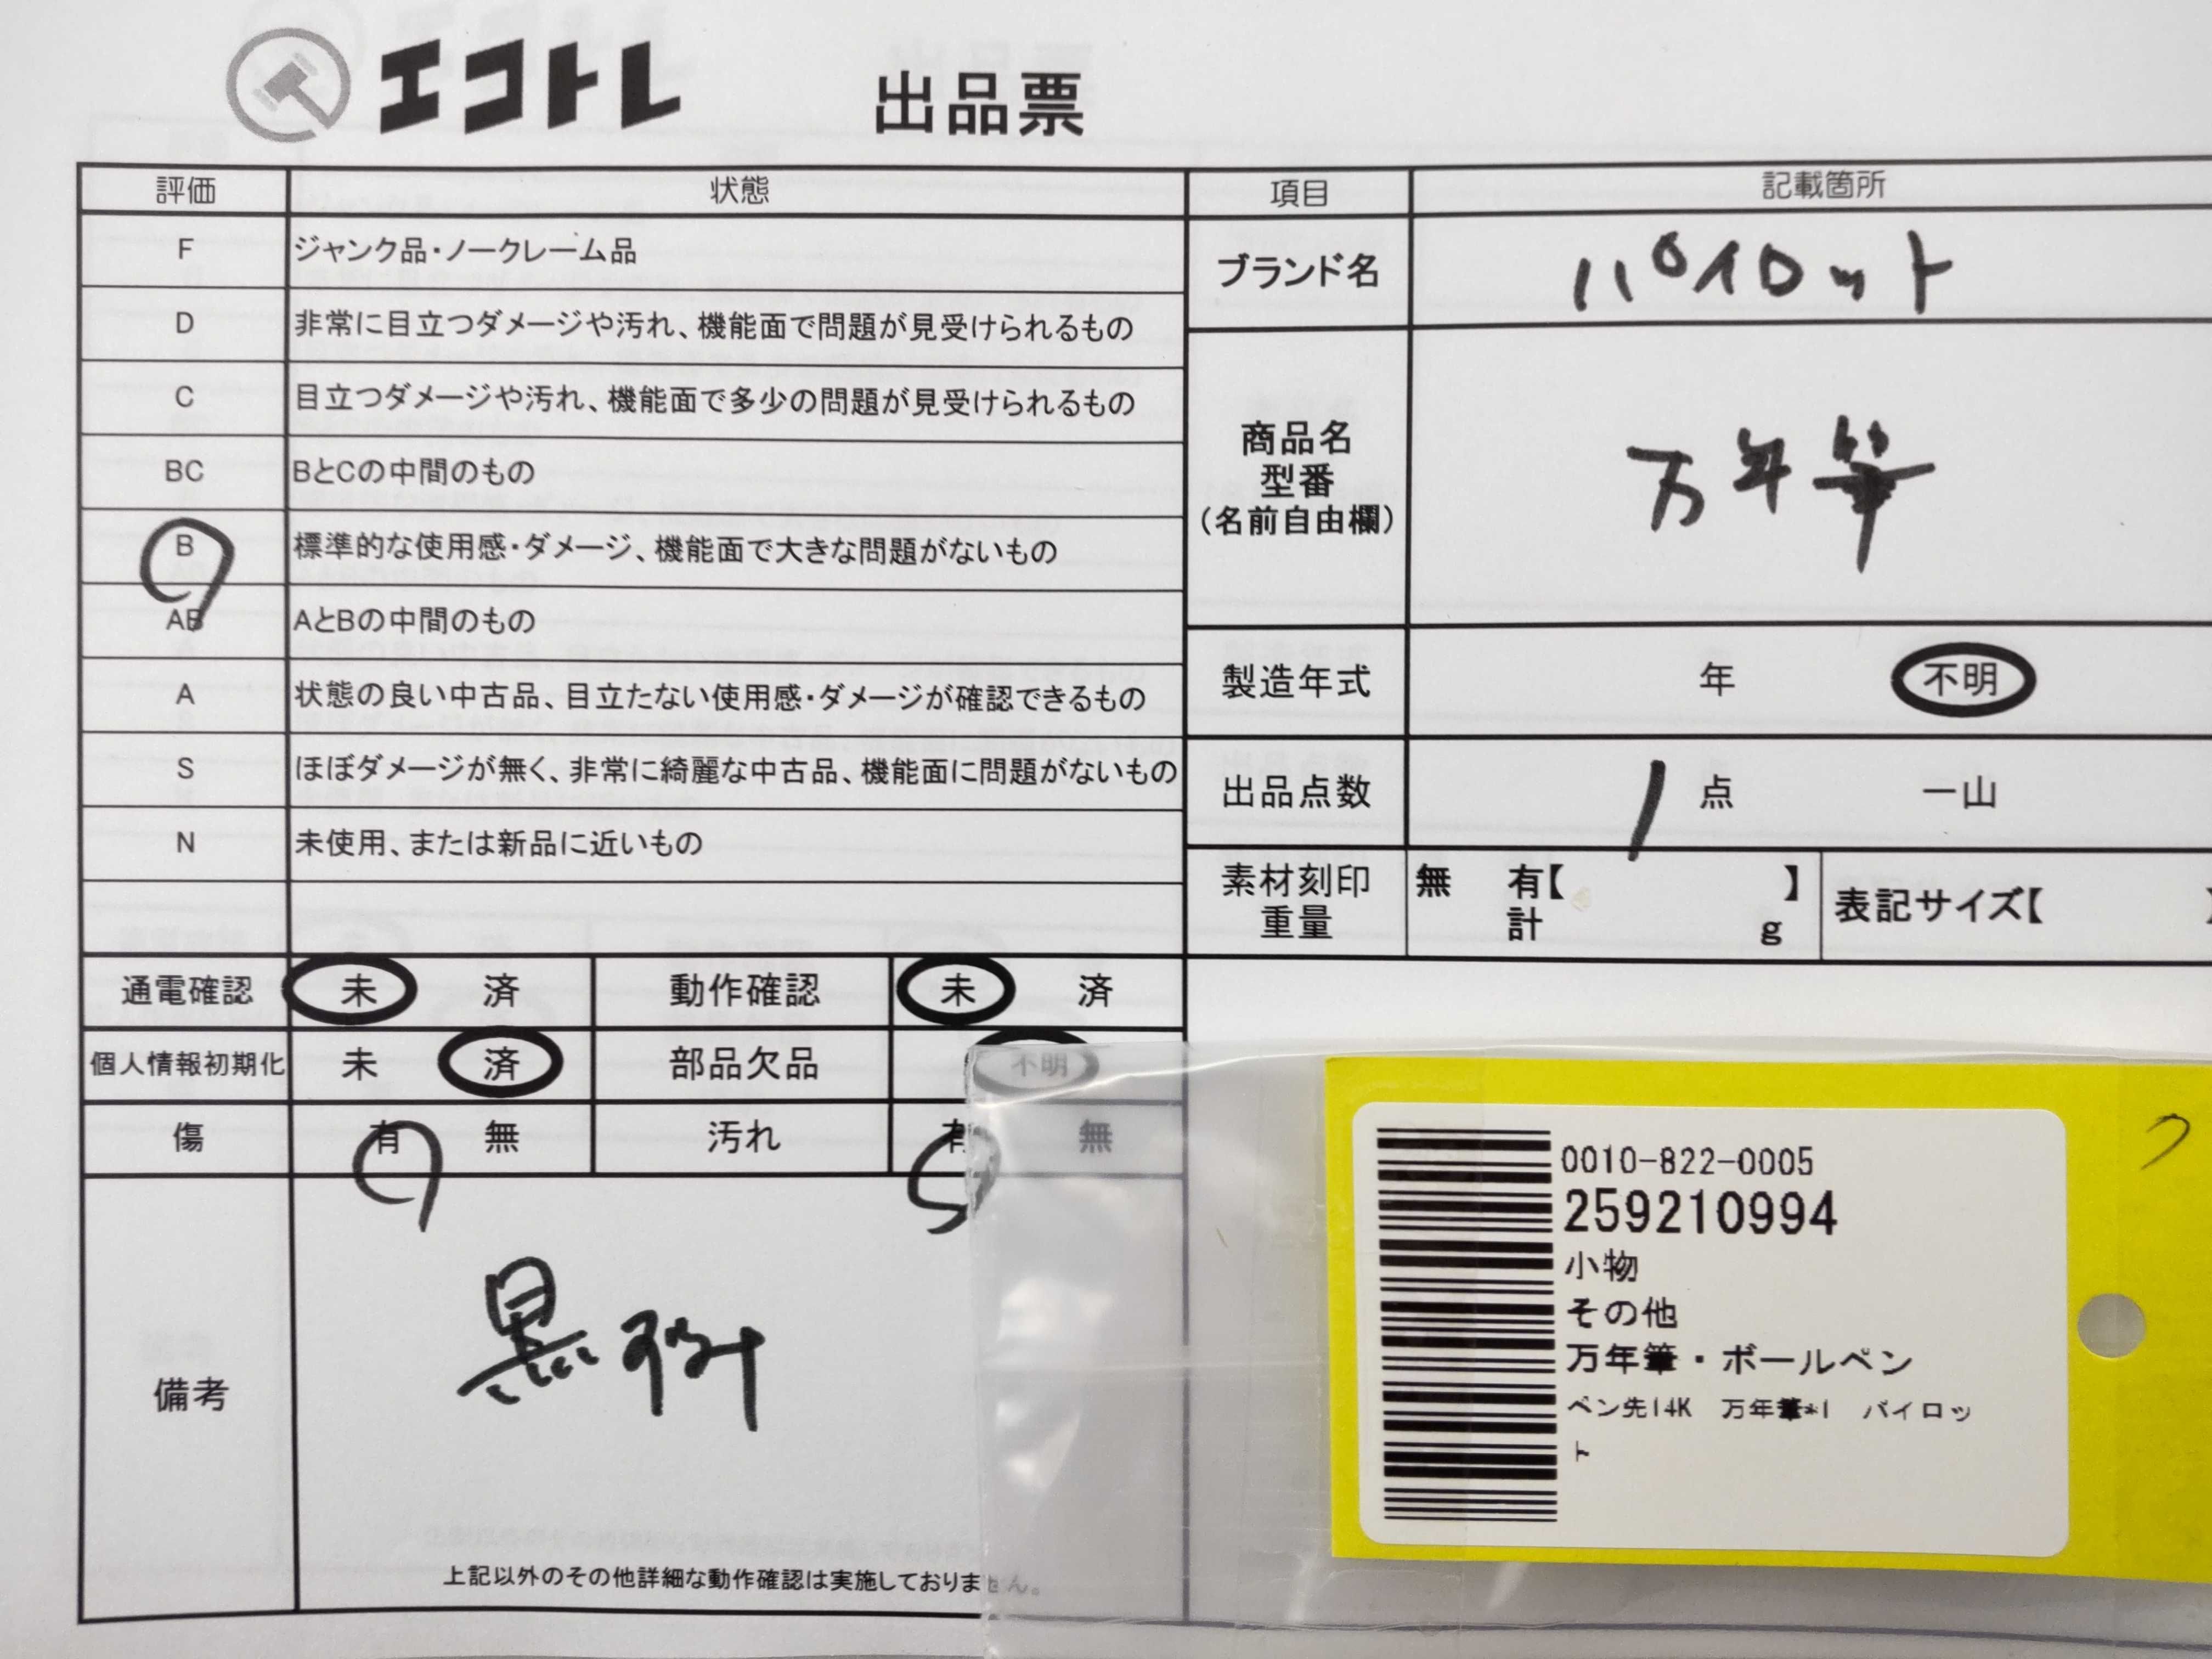 エコトレ 出品票
評価 状態
F ジャンク品・ノークレーム品
D 非常に目立つダメージや汚れ、機能面で問題が見受けられるもの
C 目立つダメージや汚れ、機能面で多少の問題が見受けられるもの
BC BとCの中間のもの
B 標準的な使用感・ダメージ、機能面で大きな問題がないもの
AB AとBの中間のもの
A 状態の良い中古品、目立たない使用感・ダメージが確認できるもの
S ほぼダメージが無く、非常に綺麗な中古品、機能面に問題がないもの
N 未使用、または新品に近いもの
通電確認 未 済 動作確認 未 済
個人情報初期化 未 済 部品欠品 不明
傷 有 無 汚れ 有 無
備考
黒
上記以外のその他詳細な動作確認は実施しておりません。
項目 記載箇所
ブランド名 パイロット
商品名
型番
(名前自由欄)
万年筆
製造年式 年 不明
出品点数 1 点 一山
素材刻印 無 有【 】
重量 計 g
表記サイズ【 】
0010-822-0005
259210994
小物
その他
万年筆・ボールペン
ペン先14K 万年筆*1 パイロッ
ト